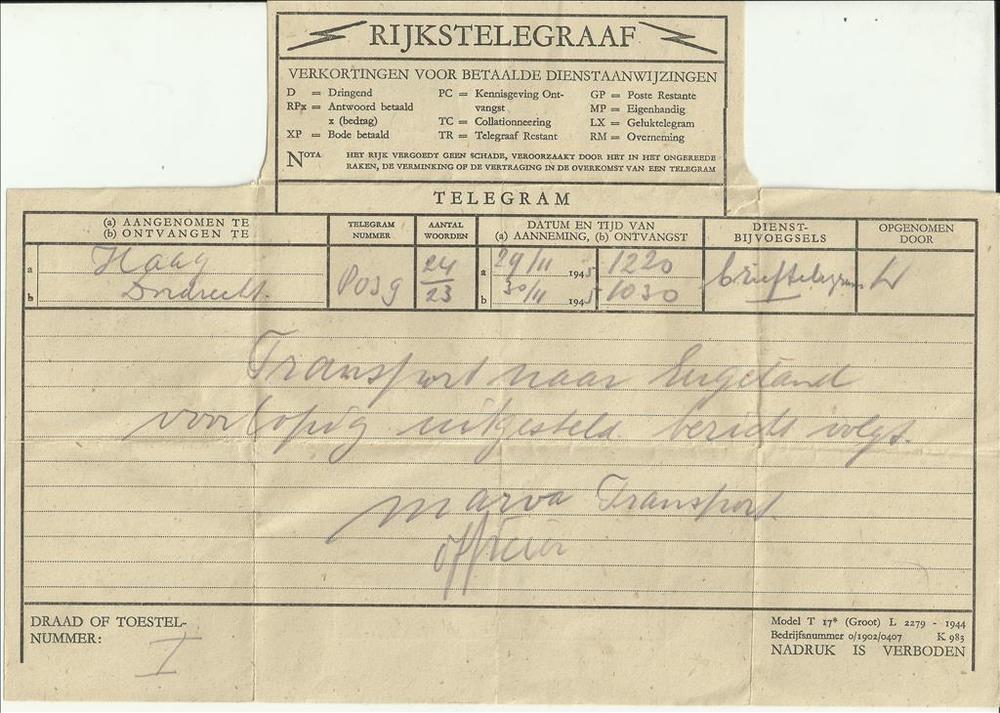 RIJKSTELEGRAAF
VERKORTINGEN VOOR BETAALDE DIENSTAANWIJZINGEN
D = Dringend
RPx = Antwoord betaald
x (bedrag)
XP = Bode betaald
PC = Kennisgeving Ont-
vangst
TC = Collationneering
TR = Telegraaf Restant
GP = Poste Restante
MP = Eigenhandig
LX = Geluktelegram
RM = Overneming
NOTA HET RIJK VERGOEDT GEEN SCHADE, VEROORZAAKT DOOR HET IN HET ONGEREEDE
RAKEN, DE VERMINKING OF DE VERTRAGING IN DE OVERKOMST VAN EEN TELEGRAM
TELEGRAM
(a) AANGENOMEN TE
(b) ONTVANGEN TE
TELEGRAM
NUMMER
AANTAL
WOORDEN
DATUM EN TIJD VAN
(a) AANNEMING, (b) ONTVANGST
DIENST-
BIJVOEGSELS
OPGENOMEN
DOOR
a Haag
b Dordrecht.
24
23
a 29/11 1945 1220
b 30/11 1945 1030
brieftelegram
Transport naar Engeland
voorlopig uitgesteld bericht volgt.
Marva Transport
officier
DRAAD OF TOESTEL-
NUMMER:
I
Model T 17* (Groot) L 2279 - 1944
Bedrijfsnummer 0/1902/0407 K 983
NADRUK IS VERBODEN